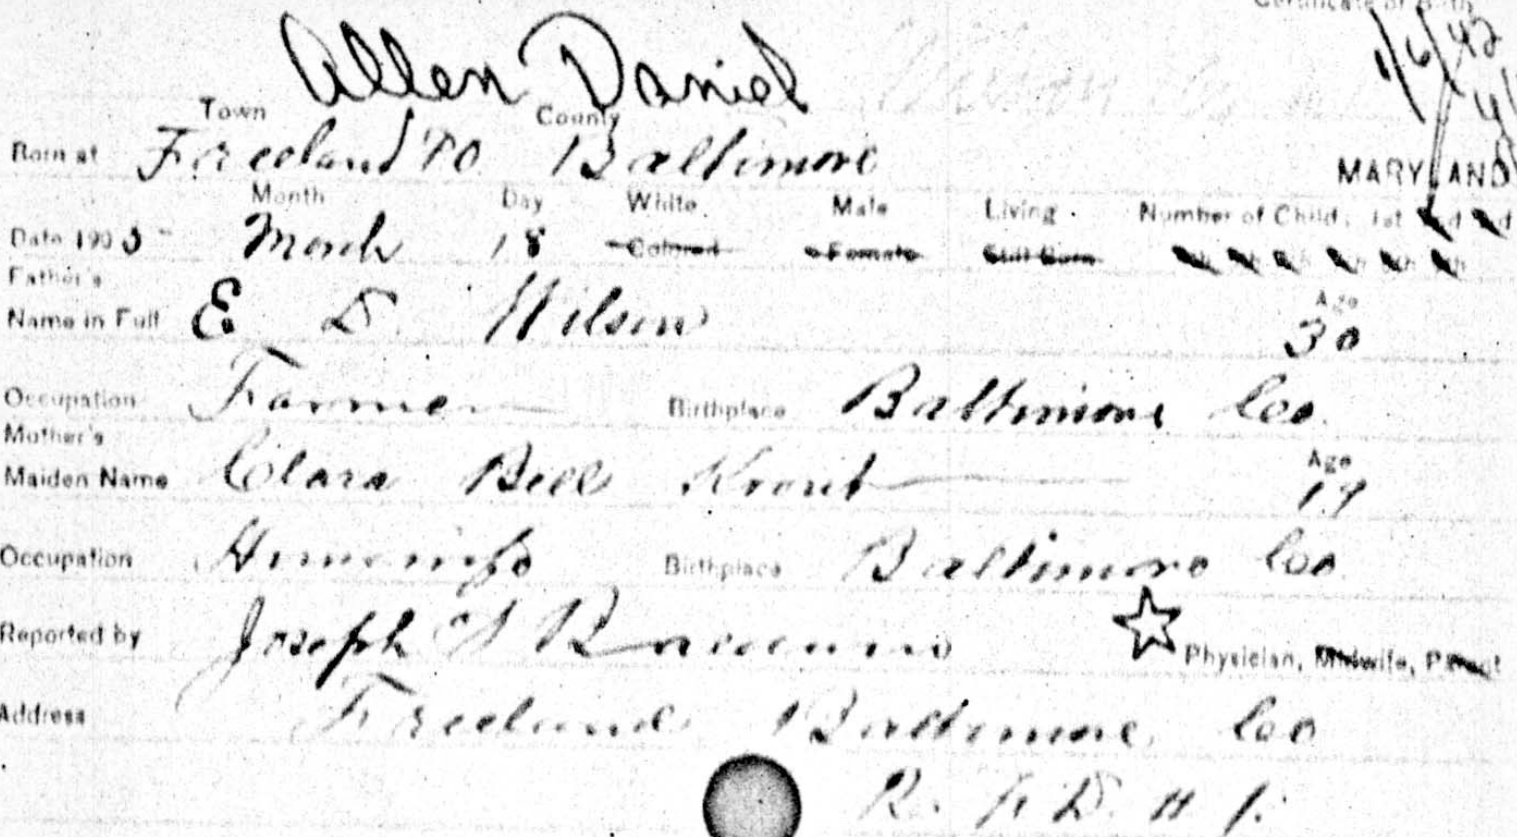 Certificate of Birth
Allen Daniel
1/6/42
Town County
Born at Freeland PO Baltimore
MARYLAND
Month Day White Male Living Number of Child: 1st
Date 1903 March 18 Colored Female Still Born
Father's Age
Name in Full E. D. Wilson 30
Occupation Farmer Birthplace Baltimore Co.
Mother's Age
Maiden Name Clara Bell Krout 19
Occupation Housewife Birthplace Baltimore Co.
Reported by Joseph Physician, Midwife, Parent
Address Freeland Baltimore Co
R. F. D. # 1.